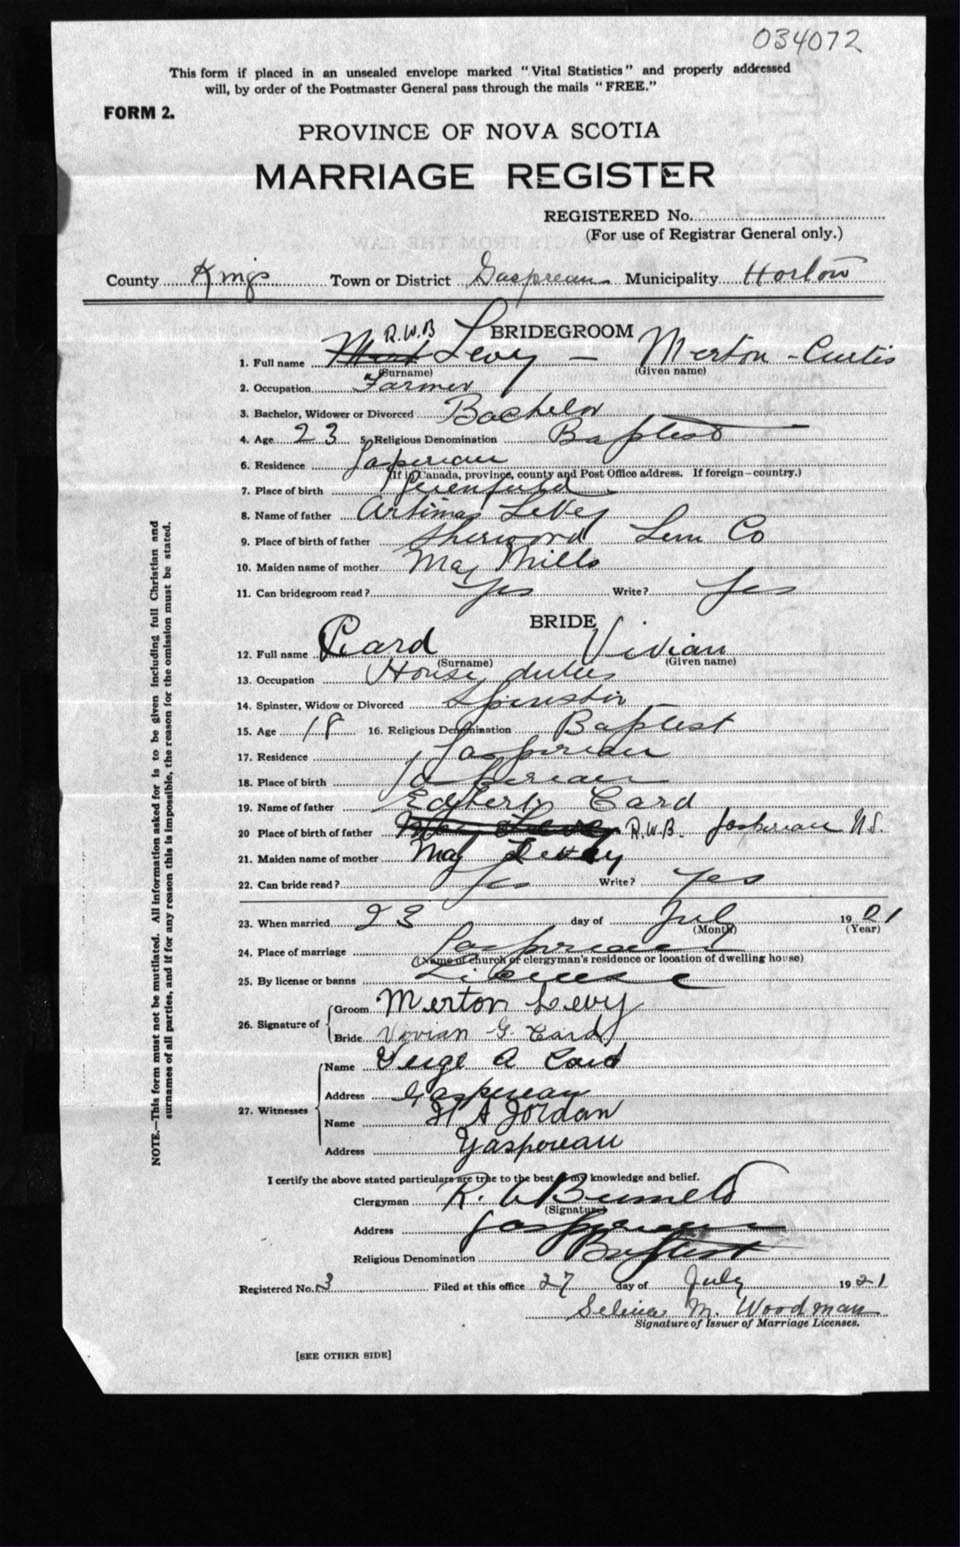 034072
This form if placed in an unsealed envelope marked "Vital Statistics" and properly addressed
will, by order of the Postmaster General pass through the mails "FREE."
FORM 2.
PROVINCE OF NOVA SCOTIA
MARRIAGE REGISTER
REGISTERED No.
(For use of Registrar General only.)
County Kings Town or District Gaspereau Municipality Horton
BRIDEGROOM
R.W.B
1. Full name Levy - Merton - Curtis
(Surname) (Given name)
2. Occupation Farmer
3. Bachelor, Widower or Divorced Bachelor
4. Age 23 5. Religious Denomination Baptist
6. Residence Gaspereau
(If in Canada, province, county and Post Office address. If foreign—country.)
7. Place of birth Greenfield
8. Name of father Artimas Levey
9. Place of birth of father Sherwood Lun Co
10. Maiden name of mother May Mills
11. Can bridegroom read? Yes Write? Yes
BRIDE
12. Full name Card Vivian
(Surname) (Given name)
13. Occupation House duties
14. Spinster, Widow or Divorced Spinster
15. Age 18 16. Religious Denomination Baptist
17. Residence Gaspereau
18. Place of birth Gaspereau
19. Name of father Egbert Card
20 Place of birth of father May Levey R.W.B. Gaspereau N.S.
21. Maiden name of mother May Levey
22. Can bride read? Yes Write? Yes
23. When married 23 day of July 1921
(Month) (Year)
24. Place of marriage Gaspereau
(Name of church or clergyman's residence or location of dwelling house)
25. By license or banns License
26. Signature of Groom Merton Levy
Bride Vivian G. Card
27. Witnesses Name A Card
Address Gaspereau
Name H A Jordan
Address Gaspereau
I certify the above stated particulars are true to the best of my knowledge and belief.
Clergyman R.
(Signature)
Address Gaspereau
Religious Denomination Baptist
Registered No. 3 Filed at this office 27 day of July 1921
Selina M. Woodman
Signature of Issuer of Marriage Licenses.
[SEE OTHER SIDE]
NOTE.—This form must not be mutilated. All information asked for is to be given including full Christian and
surnames of all parties, and if for any reason this is impossible, the reason for the omission must be stated.